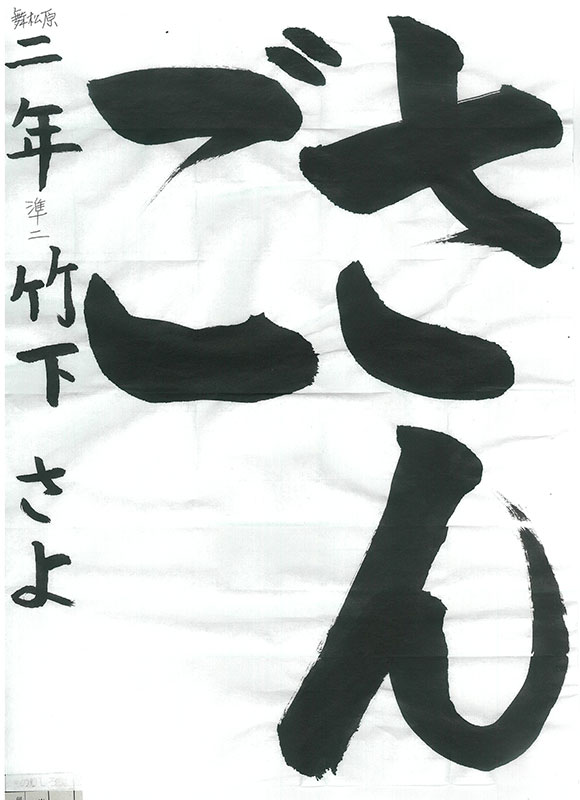 さん
ご
舞松原
二年 竹下 さよ
準二